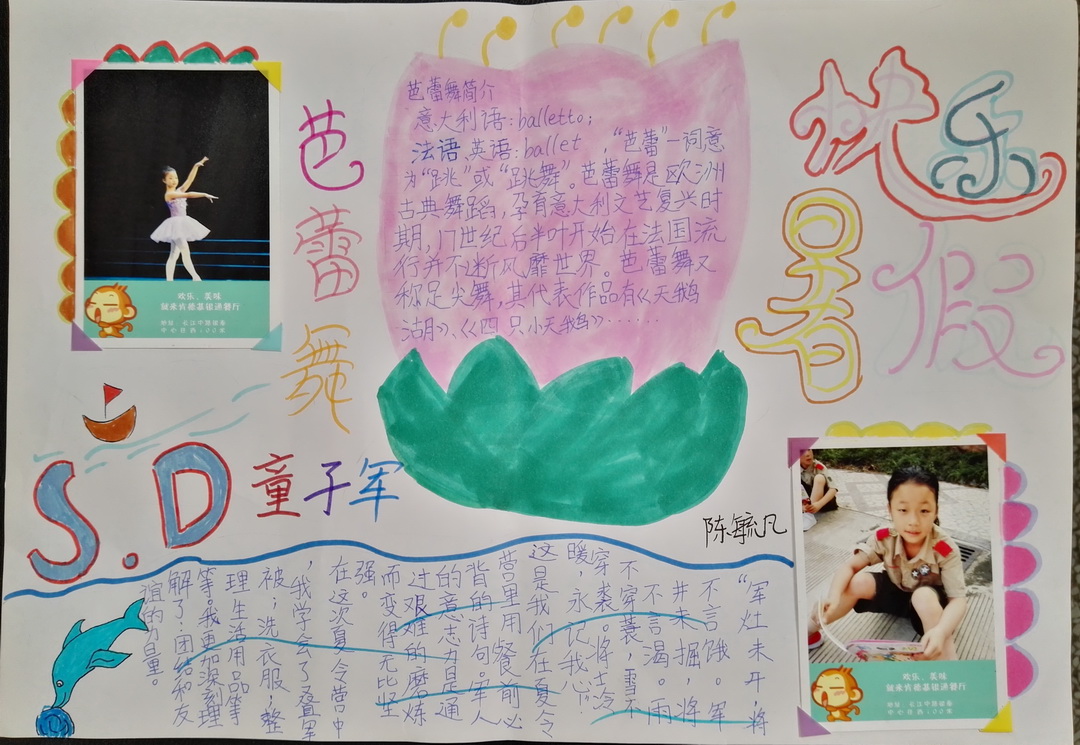 快乐
暑假
芭蕾舞
芭蕾舞简介
意大利语:balletto;
法语、英语:ballet ,“芭蕾”一词意
为“跳”或“跳舞”。芭蕾舞是欧洲
古典舞蹈,孕育意大利文艺复兴时
期,17世纪后半叶开始在法国流
行并不断风靡世界。芭蕾舞又
称足尖舞,其代表作品有《天鹅
湖》、《四只小天鹅》······
欢乐、美味
就来肯德基银通餐厅
S.D童子军
陈毓凡
“军灶未开,将
不言饿。军
井未掘,将
不言渴。雨
不穿蓑,雪不
穿裘。将士冷
暖,永记我心”!
这是我们在夏令
营里用餐前必
背的诗句。军人
的意志力是通
过艰难的磨炼
而变得无比坚
强。
在这次夏令营中
,我学会了叠军
被;洗衣服,整
理生活用品等
等。我更加深刻理
解了:团结和友
谊的力量。
欢乐、美味
就来肯德基银通餐厅